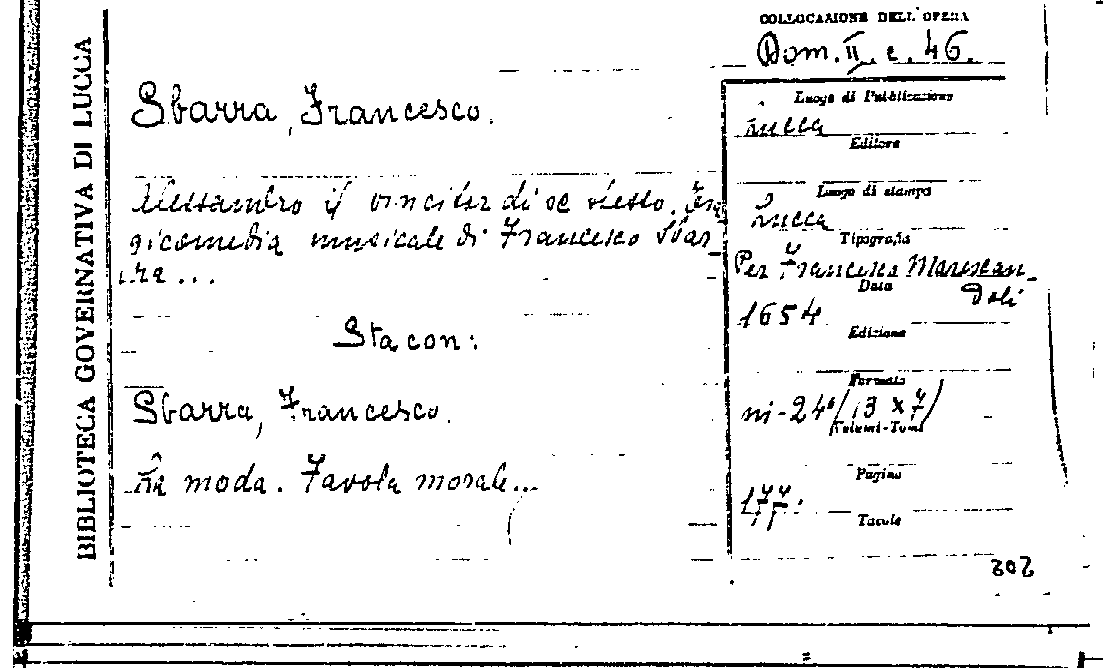 BIBLIOTECA GOVERNATIVA DI LUCCA
COLLOCAZIONE DELL'OPERA
Dom. II. c. 46.
Sbarra, Francesco.
Alessandro il vincitor di se stesso. Tra
gicomedia musicale di Francesco Sbar
ra...
Sta con:
Sbarra, Francesco.
La moda. Favola morale...
Luogo di Pubblicazione
Lucca
Editore
Luogo di stampa
Lucca
Tipografia
Per Francesco Marescan
doli
Data
1654
Edizione
Formato
in-24° (13 x 7)
Volumi-Tomi
Pagine
177.
Tavole
302